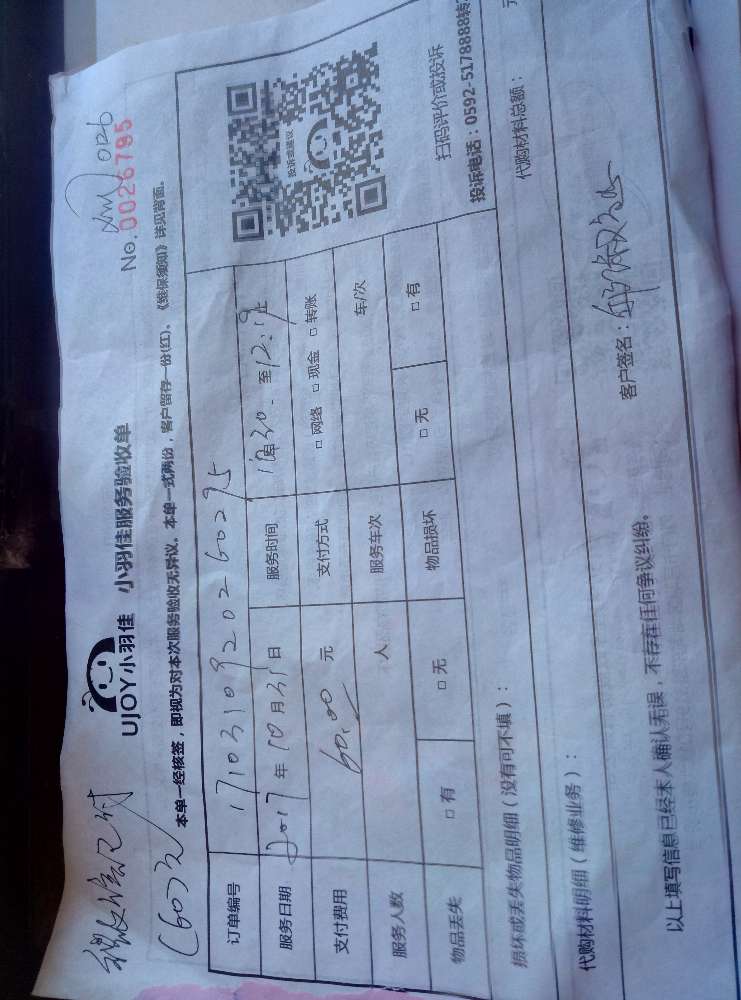 0126
No.0026795
UJOY小羽佳 小羽佳服务验收单
(60元)
本单一经核签，即视为对本次服务验收无异议。本单一式两份，客户留存一份(红)。《维保须知》详见背面。
订单编号 1710310920260295
服务日期 2017年10月31日 服务时间 至12:19止
支付费用 60.00 元 支付方式 □网络 □现金 □转账
服务人数 人 服务车次 车/次
物品丢失 □有 □无 物品损坏 □无 □有
投诉或建议
扫码评价或投诉
投诉电话：0592-5178888转
损坏或丢失物品明细（没有可不填）：
代购材料明细（维修业务）： 代购材料总额： 元
以上填写信息已经本人确认无误，不存在任何争议纠纷。 客户签名：